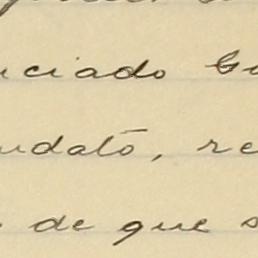 nciado Gu
udato, re
de que s